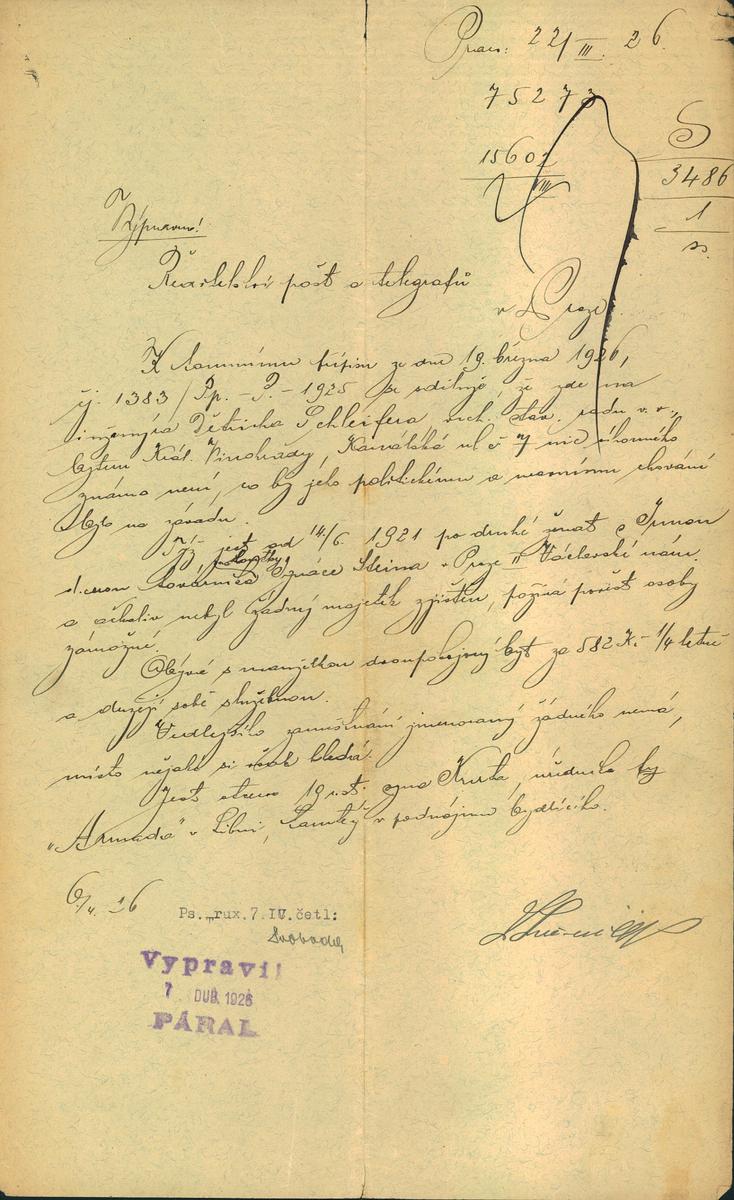 Praes: 22/III. 26.
75273
15602
VIII
S
3486
1
ss.
Výpravna!
Ředitelství pošt a telegrafů
v Praze.
K tamnímu přípisu ze dne 19. března 1926,
čj. 1383/Pp. - P. - 1925 se sděluje, že zde na
inženýra Dětricha Schleifera, vrch. stav. radu v. v.,
bytem Král. Vinohrady, Kanálská ul č 7 nic úhonného
známo není, co by jeho politickému a mravnímu chování
bylo na závadu.
Týž jest od 14/6. 1921 po druhé ženat s Irmou
dcerou továrníka Ignáce Steina v Praze II Václavské nám.
a ačkoliv nebyl žádný majetek zjištěn, požívá pověst osoby
zámožné.
Obývá s manželkou dvoupokojový byt za 582 Kč 1/4 letně
a drží sobě služebnou.
Vedlejšího zaměstnání jmenovaný žádného nemá,
místo nějaké si však hledá.
Jest otcem 19 r. st. syna Kurta, úředníka fy
"Armada" v Libni, tamtéž v podnájmu bydlícího.
6/4. 26
Ps. rux. 7. IV. četl:
Svoboda
Vypravil
7 DUB. 1926
PÁRAL